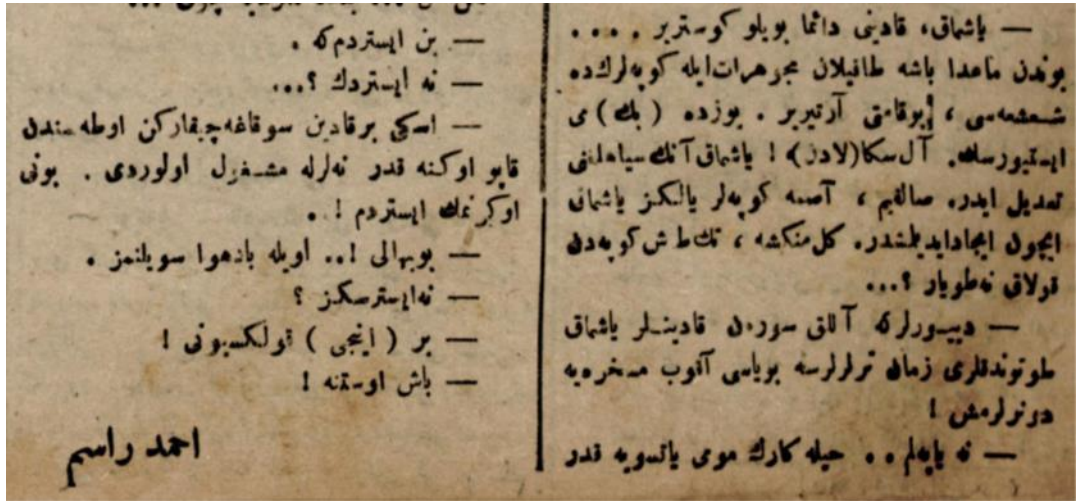 — یاشماق، قادینی دائما بویلو کوسترر . . . .
بوندن ماعدا باشه طاقیلان مجوهرات ایله کوپه لرك ده
شعشعه سی ، بوقامتی آرتیریر . بوزده ( بك ) ی
ایستیورسك. آل سكا(لادن) ! یاشماق آنك سیاهلغنی
تعدیل ایدر. صالقیم ، آصمه کوپه لر یالکز یاشماق
ایچون ایجاد ایدیلمشدر. کل منکشه ، تك طاش کوپه دن
قولاق نه طویار ؟...
— دییورلرکه آللق سورەن قادینلر یاشماق
طوتوندقلری زمان ترلرلرسه بویاسی آقوب مسخره یه
دونرلرمش !
— نه یاپه لم . . حیله کارك مومی یاتسویه قدر
— بن ایستردم که .
— نه ایستردك ؟...
— اسکی بر قادین سوقاغه چیقارکن اوطه سندن
قاپو اوکنه قدر نه لرله مشغول اولوردی . بونی
اوکرنمك ایستردم ! . .
— بوبهالی !.. اویله بادهوا سویلنمز .
— نه ایسترسکز ؟
— بر ( اینجی ) قولکسیونی !
— باش اوستنه !
احمد راسم